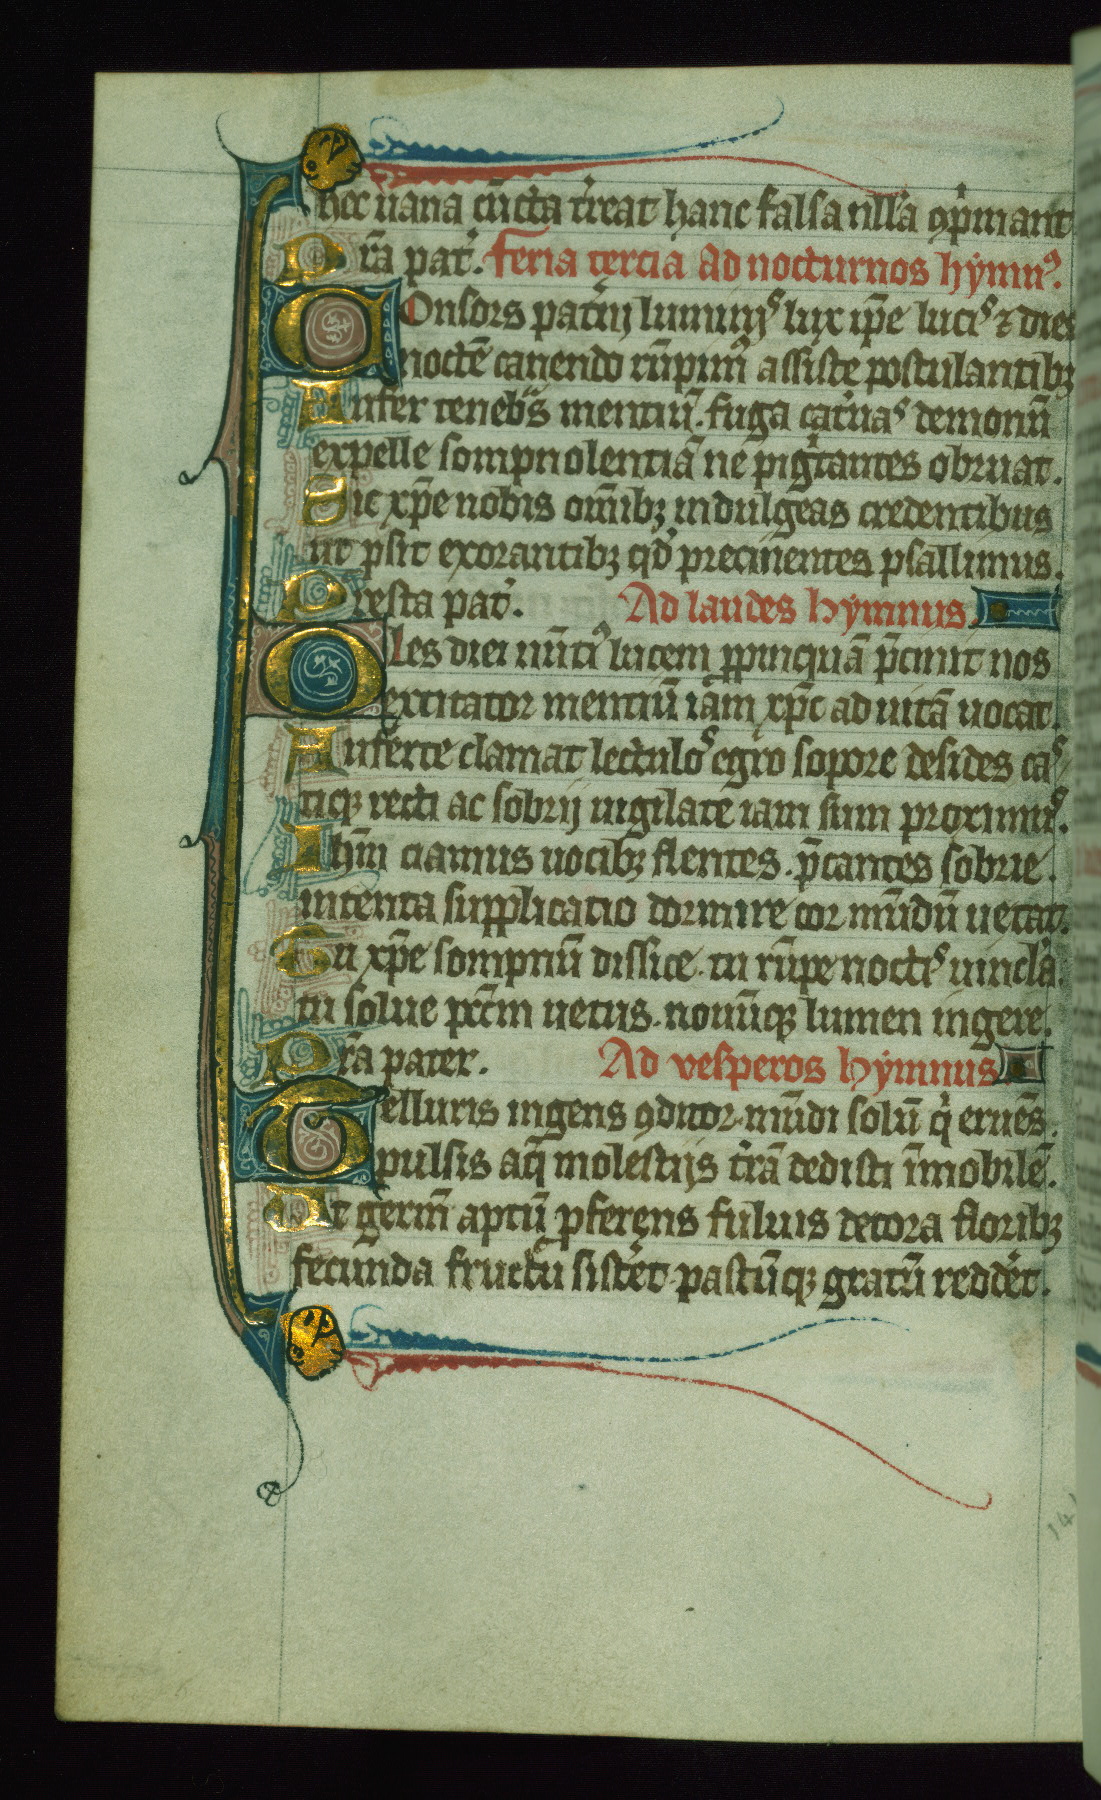 hec uana cūcta t̓reat hanc falsa nlla 9p̓mant
Pr̄a pat̓. Feria tercia Ad nocturnos hẏmn⁹.
Consors pat̓ni luminis lux ip̄e lucis ⁊ dies
noctē canendo rūpim⁹ assiste postulantibꝫ
Aufer tenebras mentiū. fuga cat̓uas demonū
expelle sompnolentiā ne pigritantes obruat.
Sic xp̄e nobis om̄ibꝫ indulgeas credentibus
ut ꝓsit exorantibꝫ qd̓ precinentes psallimus.
Presta pat̓. Ad laudes hẏmnus.
Ales diei nūti⁹ lucem ꝓpinquā p̄cinit nos
excitator mentiū iam xp̄c ad uitā uocat.
Auferte clamat lectulos egro sopore desides cas
ticꝫ recti ac sobrij uigilate iam sum proximus.
Ih̄m ciamus uocibꝫ flentes. p̄cantes sobrie.
intenta supplicatio dormire cor mūdū uetat.
Tu xp̄e sompnū dissice. tu rūpe noctis uincla.
tu solue pccm̄ uetus. nouūqꝫ lumen ingere.
Pr̄a pater. Ad vesperos hẏmnus
Telluris ingens 9ditor. mūdi solū q̓ eruēs.
pulsis aq̄ molestijs t̓rā dedisti īmobilē.
Ut germ̄ aptū ꝓferens fuluis decora floribꝫ
fecunda fructu sist̓et. pastūqꝫ gratū redd̓et.
14